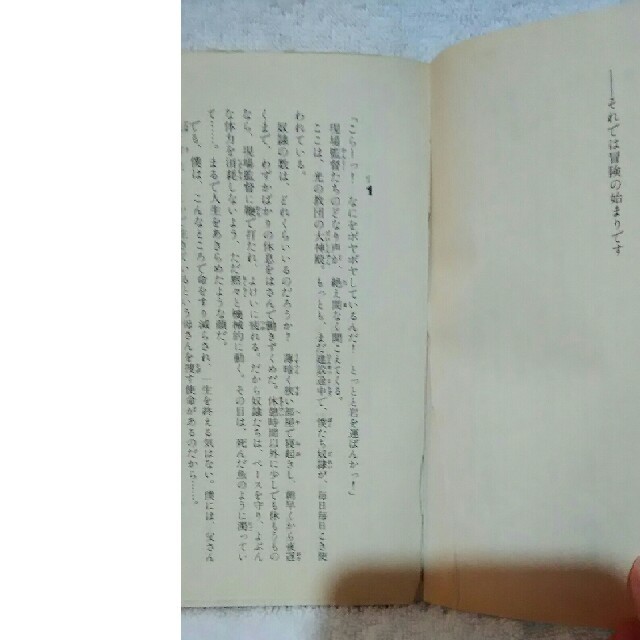 ――それでは冒険の始まりです
1
「こらーっ!　なにをボヤボヤしているんだ!　とっとと岩を運ばんかっ!」
現場監督たちのどなり声が、絶え間なく聞こえてくる。
ここは、光の教団の大神殿。もっとも、まだ建設途中で、僕たち奴隷が、毎日毎日こき使
われている。
奴隷の数は、どれくらいいるのだろうか?　薄暗く狭い部屋で寝起きし、朝早くから夜遅
くまで、わずかばかりの休息をはさんで働きづくめだ。休憩時間以外に少しでも休もうもの
なら、現場監督に鞭で打たれ、よけいに疲れる。だから奴隷たちは、ペースを守り、よぶん
な体力を消耗しないよう、ただ黙々と機械的に働く。その目は、死んだ魚のように濁ってい
て……。まるで人生をあきらめたような顔だ。
でも、僕は、こんなところで命をすり減らされ、一生を終える気はない。僕には、父さん
母さんを捜す使命があるのだから……。